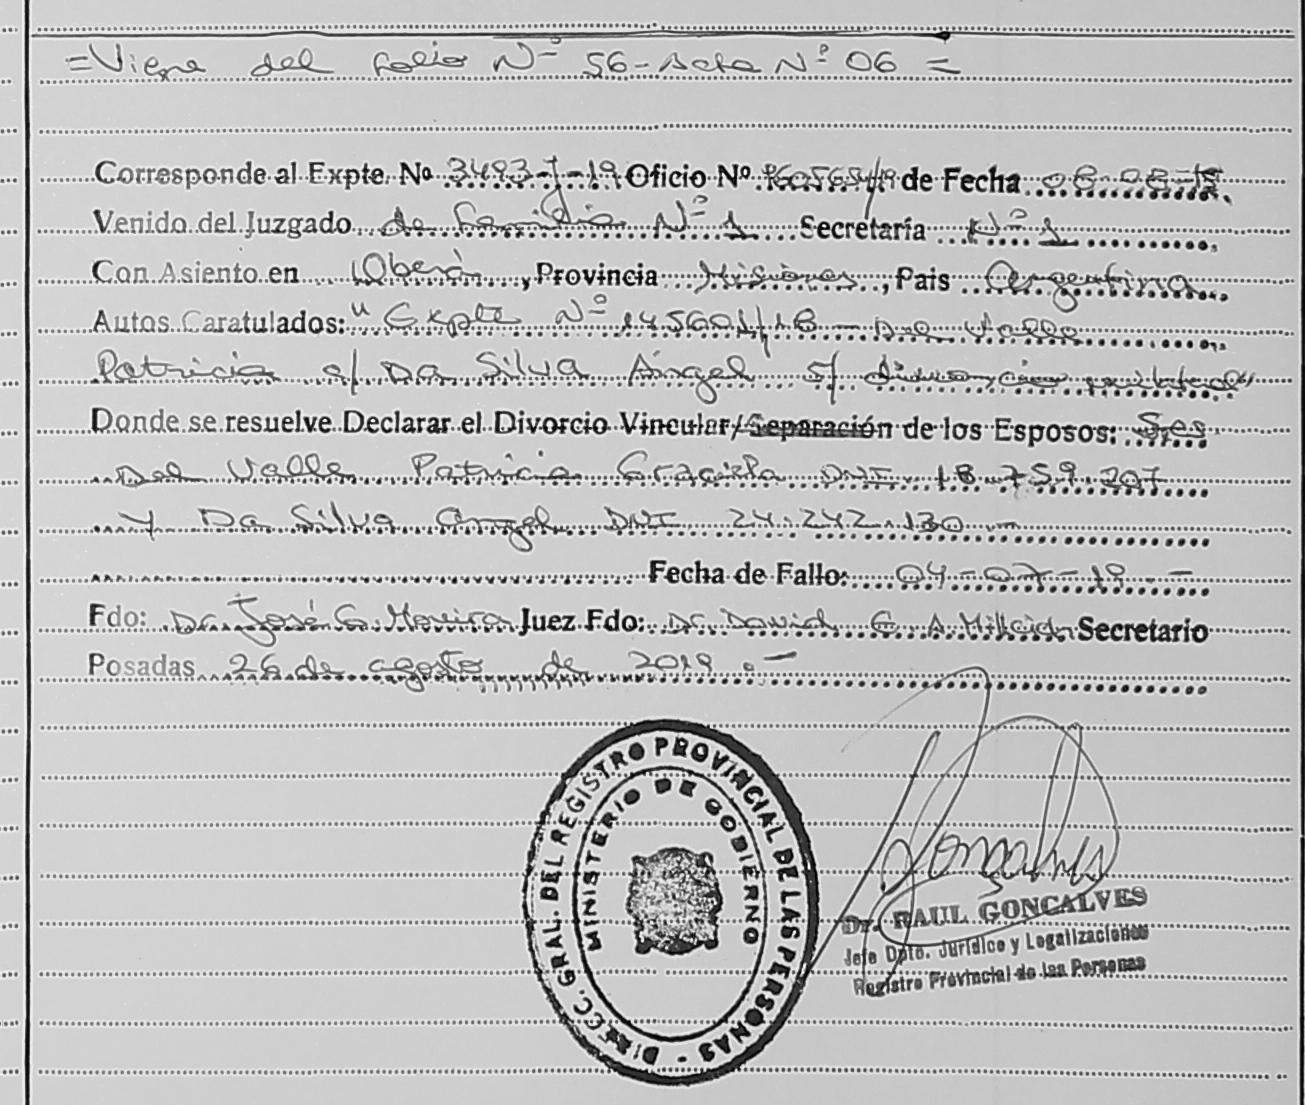 =Viene del folio Nº 56-Acta Nº 06=
Corresponde al Expte. Nº 3493-J-19 Oficio Nº de Fecha 08-08-19
Venido del Juzgado de Familia Nº 1 Secretaría Nº 1
Con Asiento en Oberá, Provincia Misiones, País Argentina
Autos Caratulados: "Expte Nº 145601/18 - Del Valle
Patricia c/ Da Silva Ángel s/ divorcio unilateral"
Donde se resuelve Declarar el Divorcio Vincular/Separación de los Esposos: Sres
Del Valle Patricia Graciela DNI 18.759.207
Y Da Silva Angel DNI 24.242.130 -
Fecha de Fallo: 04-07-19.-
Fdo: Dr. José G. Moreira Juez Fdo: Dr. David E. A. Secretario
Posadas 26 de agosto de 2019.-
DIRECC. GRAL. DEL REGISTRO PROVINCIAL DE LAS PERSONAS -
MINISTERIO DE GOBIERNO
Dr. RAUL GONCALVES
Jefe Dpto. Jurídico y Legalizaciones
Registro Provincial de las Personas